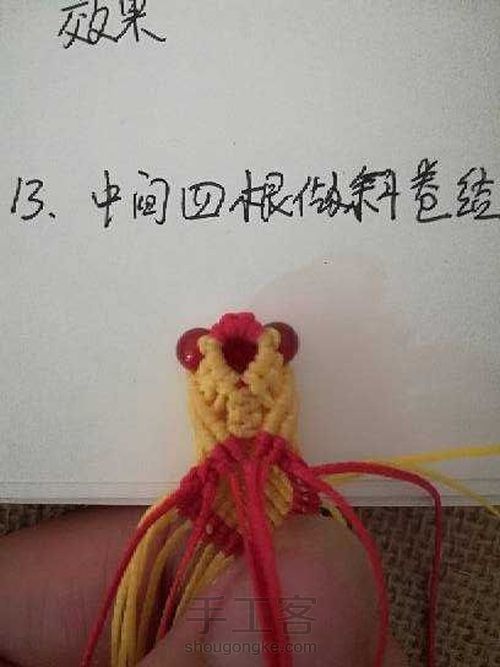 效果
13、中间四根做斜卷结
手工客
shougongke.com